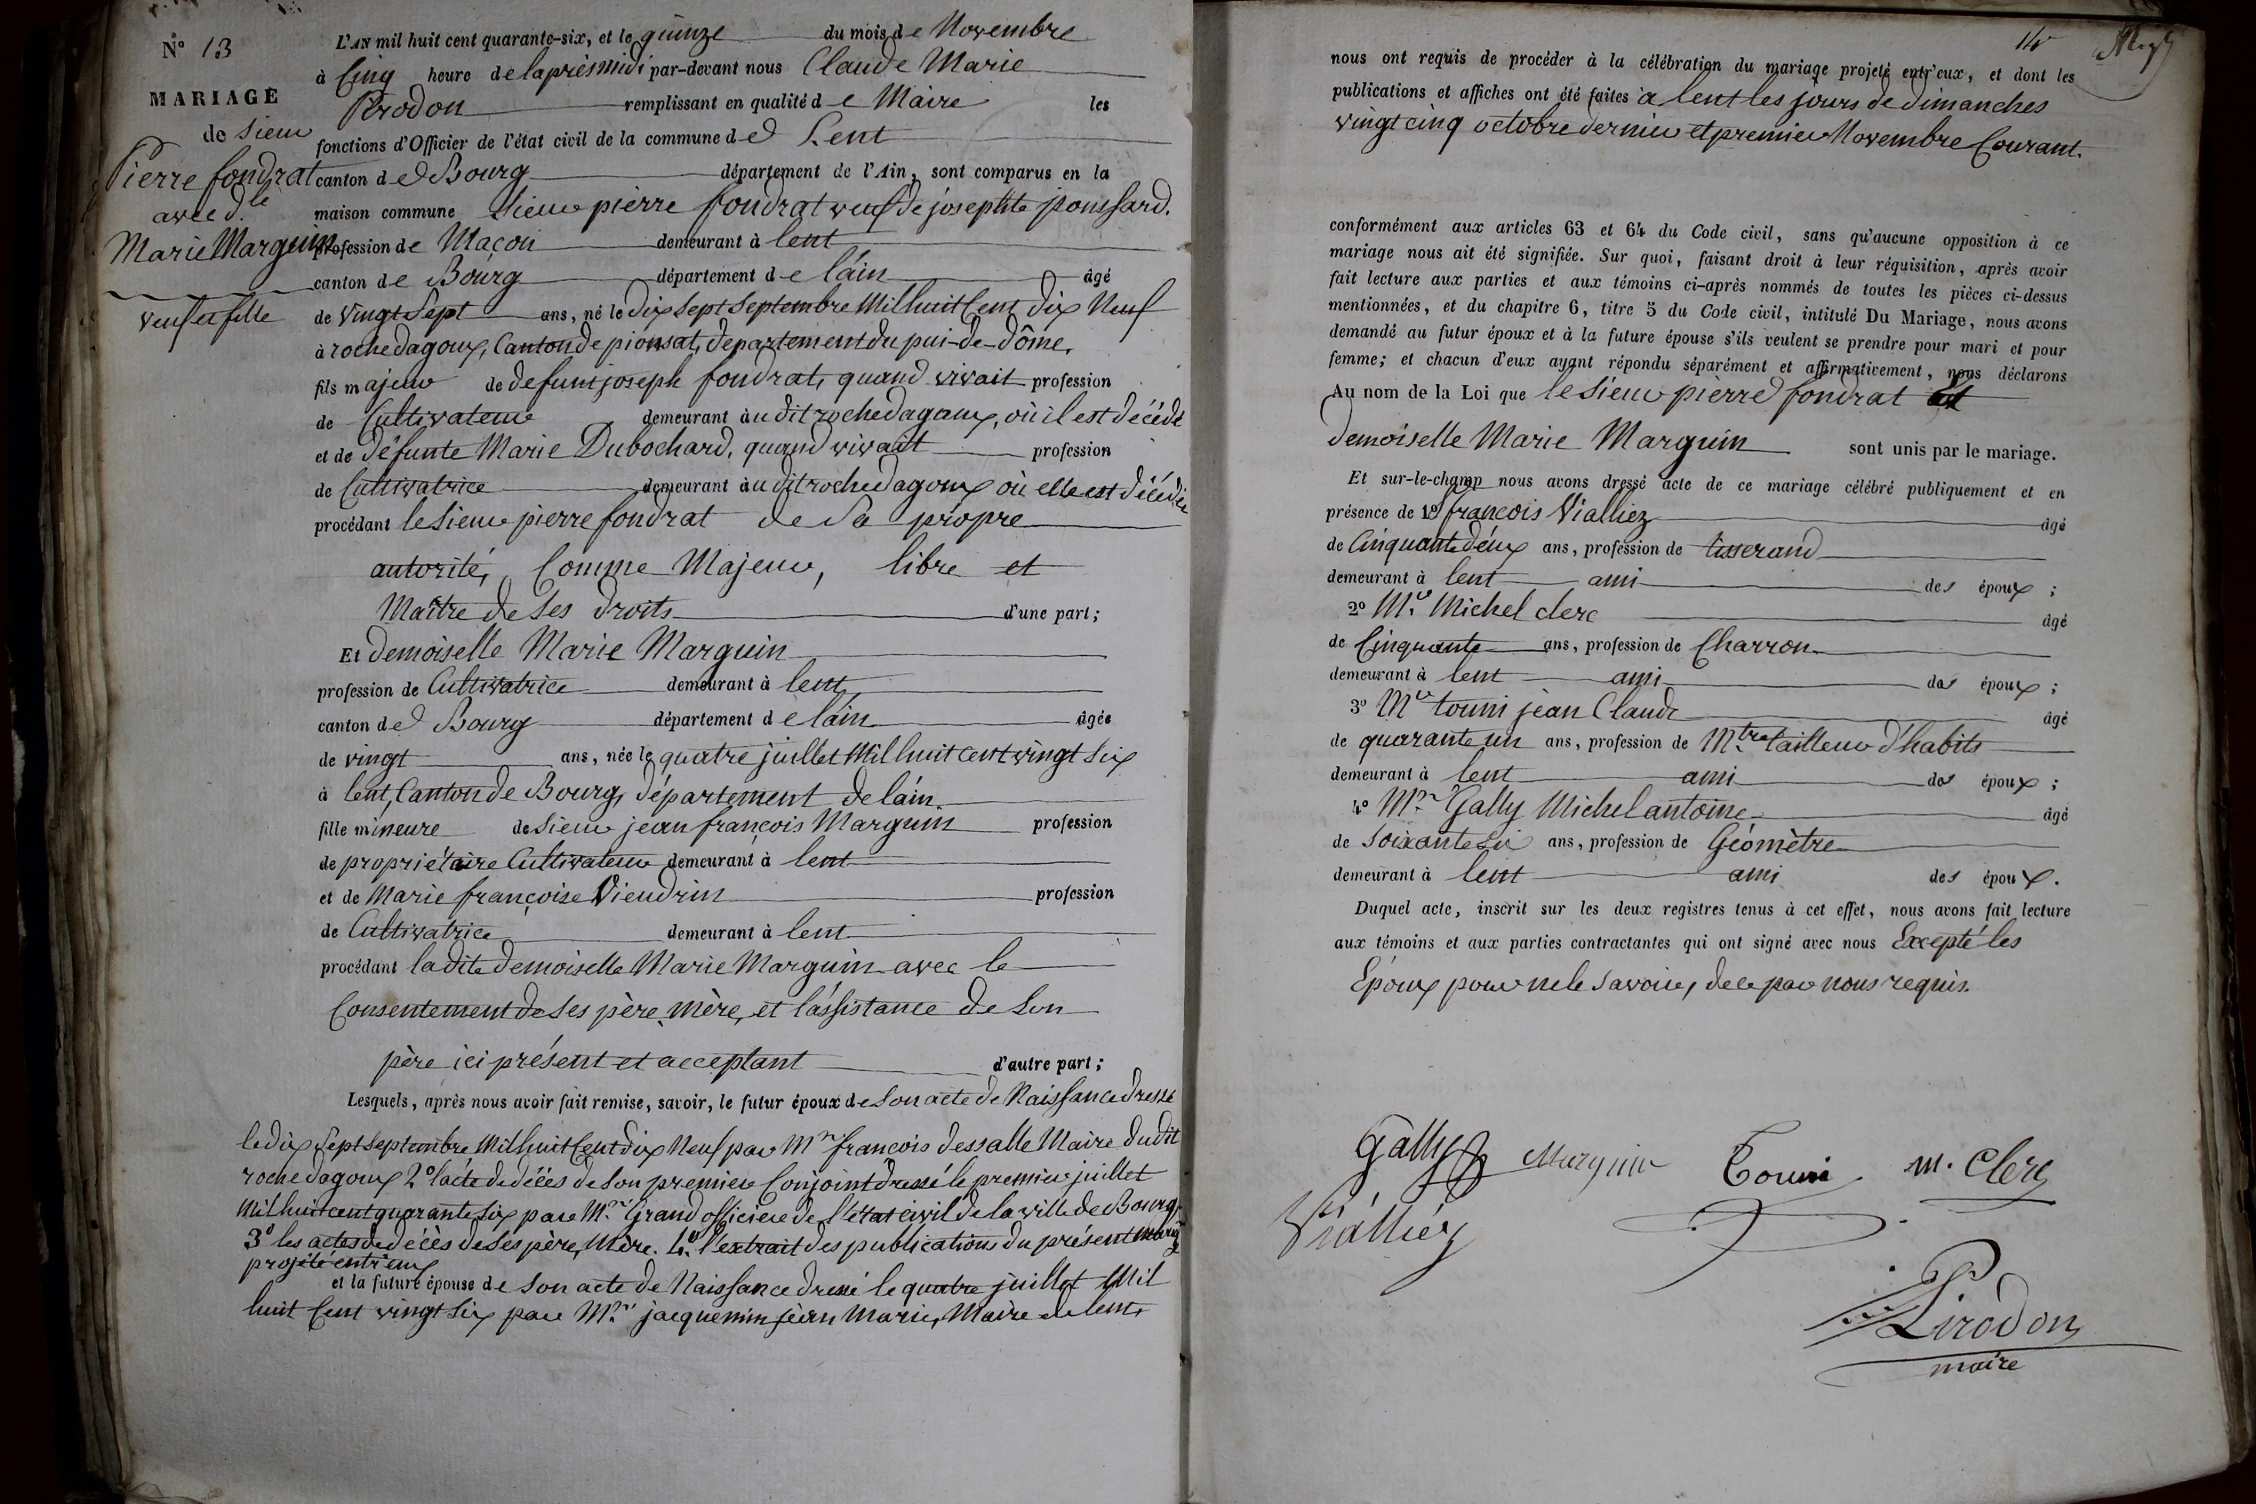 N° 13
MARIAGE
de sieur
Pierre fondrat
avec d.lle
Marie Marguin
veuf et fille
L'AN mil huit cent quarante-six, et le quinze du mois de Novembre
à Cinq heure de laprèsmidi par-devant nous Claude Marie
Perodon remplissant en qualité de Maire les
fonctions d'Officier de l'état civil de la commune de Lent
canton de Bourg département de l'Ain, sont comparus en la
maison commune Sieur pierre fondrat veuf de josephte poussard.
profession de Maçon demeurant à lent
canton de Bourg département de láin âgé
de vingt Sept ans, né le dix sept Septembre Mil huit Cent dix Neuf
à rochedagoux, Canton de pionsat, departement du pui-de-dôme,
fils majeur de defunt joseph fondrat, quand vivait profession
de Cultivateur demeurant au dit rochedagoux, où il est décédé
et de défunte Marie Dubochard, quand vivait profession
de Cultivatrice demeurant au dit rochedagoux où elle est décédée
procédant le Sieur pierre fondrat de Sa propre
autorité, Comme Majeur, libre et
Maître de Ses droits d'une part;
Et demoiselle Marie Marguin
profession de Cultivatrice demeurant à lent,
canton de Bourg département de láin âgée
de vingt ans, née le quatre juillet Mil huit cent vingt Six
à lent, Canton de Bourg, département de láin.
fille mineure de Sieur jean françois Marguin profession
de propriétaire Cultivateur demeurant à lent
et de Marie françoise Vieudrin profession
de Cultivatrice demeurant à lent
procédant la dite demoiselle Marie Marguin avec le
Consentement de Ses père, mère, et l'assistance de Son
père ici présent et acceptant d'autre part;
Lesquels, après nous avoir fait remise, savoir, le futur époux de Son acte de Naissance dressé
le dix Sept Septembre Mil huit Cent dix Neuf par Mr françois dessalle Maire du dit
rochedagoux 2° l'acte de décès de Son premier Conjoint dressé le premier juillet
Mil huit cent quarante Six par Mr Grand officier de l'état civil de la ville de Bourg,
3° les actes de décès de Ses père, Mère. 4° l'extrait des publications du présent mariage
projeté entr'eux
et la future épouse de Son acte de Naissance dressé le quatre juillet Mil
huit Cent vingt Six par Mr jacquemin jean Marie, Maire de lent,
14
nous ont requis de procéder à la célébration du mariage projeté entr'eux, et dont les
publications et affiches ont été faites à lent les jours de dimanches
vingt cinq octobre dernier et premier Novembre Courant.
conformément aux articles 63 et 64 du Code civil, sans qu'aucune opposition à ce
mariage nous ait été signifiée. Sur quoi, faisant droit à leur réquisition, après avoir
fait lecture aux parties et aux témoins ci-après nommés de toutes les pièces ci-dessus
mentionnées, et du chapitre 6, titre 5 du Code civil, intitulé Du Mariage, nous avons
demandé au futur époux et à la future épouse s'ils veulent se prendre pour mari et pour
femme; et chacun d'eux ayant répondu séparément et affirmativement, nous déclarons
Au nom de la Loi que le Sieur pierre fondrat et
demoiselle Marie Marguin sont unis par le mariage.
Et sur-le-champ nous avons dressé acte de ce mariage célébré publiquement et en
présence de 1° françois Vialliez âgé
de Cinquante deux ans, profession de tisserand
demeurant à lent ami des époux;
2° Mr Michel clerc âgé
de Cinquante ans, profession de Charron
demeurant à lent ami des époux;
3° Mr touni jean Claude âgé
de quarante un ans, profession de Mtre tailleur d'habits
demeurant à lent ami des époux;
4° Mr Gally Michel antoine âgé
de soixante Six ans, profession de Géomètre
demeurant à lent ami des époux.
Duquel acte, inscrit sur les deux registres tenus à cet effet, nous avons fait lecture
aux témoins et aux parties contractantes qui ont signé avec nous Excepté les
Epoux pour ne le Savoir, de ce par nous requis.
Gally Marguin Touni m. Clerc
Vialliéz
Pirodon
maire